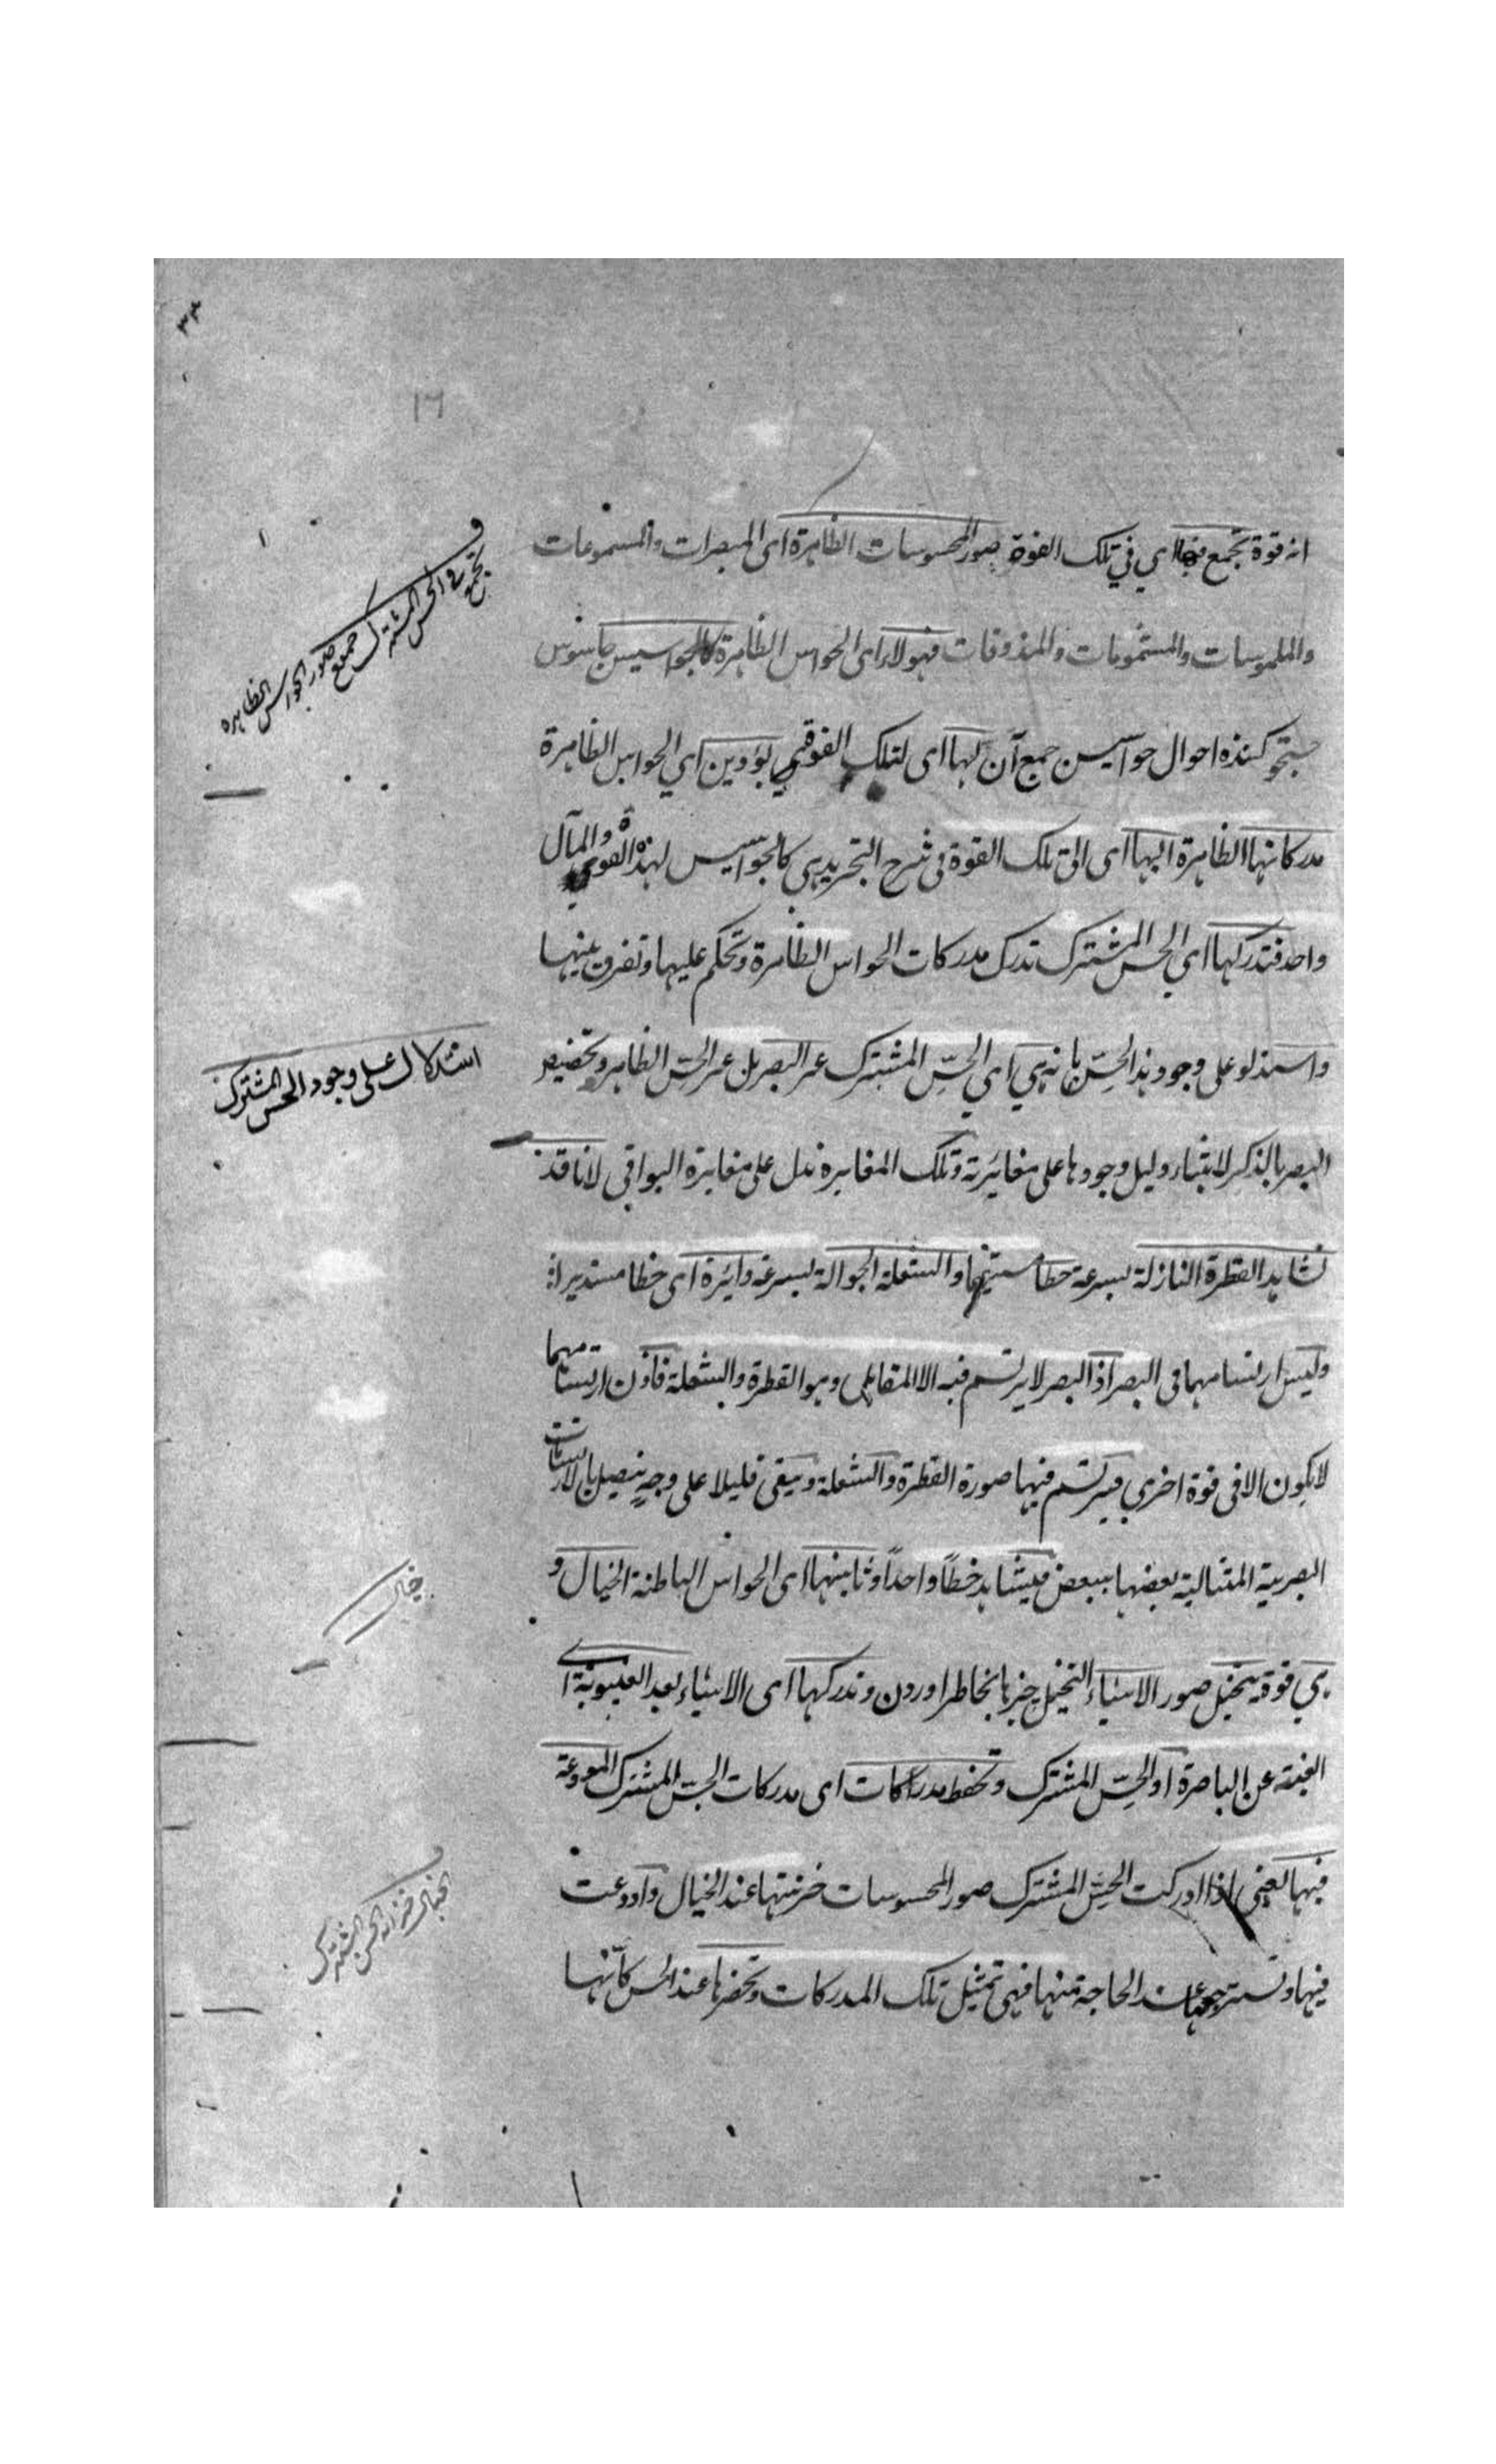 ٣٣
١٦
انه قوة تجمع فيها اي في تلك القوة صور المحسوسات الظاهرة اى المبصرات والمسموعات
والملموسات والمشمومات والمذوقات فهولاء اى الحواس الظاهرة كالجواسيس جاسوس
جستجو كننده احوال جواسيس جمع آن لها اى لتلك القوة يؤدين اي الحواس الظاهرة
مدركاتها الظاهرة اليها اى الى تلك القوة فى شرح التجريد هى كالجواسيس لهذه القوة والمآل
واحد فتدركها اي الحس المشترك تدرك مدركات الحواس الظاهرة وتحكم عليها وتفرق بينها
واستدلو على وجود هذا الحس بانه هي اي الحس المشترك غير البصر بل غير الحس الظاهر وتخصيص
البصر بالذكر لابتناء دليل وجودها على مغائرته وتلك المغايرة تدل على مغايرة البواقى لانا قد
نشاهد القطرة النازلة بسرعة خطا مستقيما والشعلة الجوالة بسرعة دائرة اى خطا مستديرا
وليس ارتسامهما فى البصر اذ البصر لا يرتسم فيه الا المقابل وهو القطرة والشعلة فاذن ارتسامهما
لا يكون الا فى قوة اخرى فيرتسم فيها صورة القطرة والشعلة ويبقى قليلا على وجه يتصل بالارتسامات
البصرية المتتالية بعضها ببعض فيشاهد خطًا واحدًا وثانيتها اى الحواس الباطنة الخيال و
هي قوة تتخيل صور الاشياء التخيل چيزها بخاطر اوردن وتدركها اى الاشياء بعد الغيبوبة اى
الغيبة عن الباصرة او الحس المشترك وتحفظ مدركات اى مدركات الحس المشترك المودعة
فيها يعنى اذا ادركت الحس المشترك صور المحسوسات خزنتها عند الخيال واودعت
فيها وتسترجعها عند الحاجة منها فهى تمثيل تلك المدركات وتحضرها عند الحس كأنها
تجمع فى الحس المشترك جميع صور الحواس الظاهره
استدلال على وجود الحس المشترك
خيال
الخيال خزانة الحس المشترك